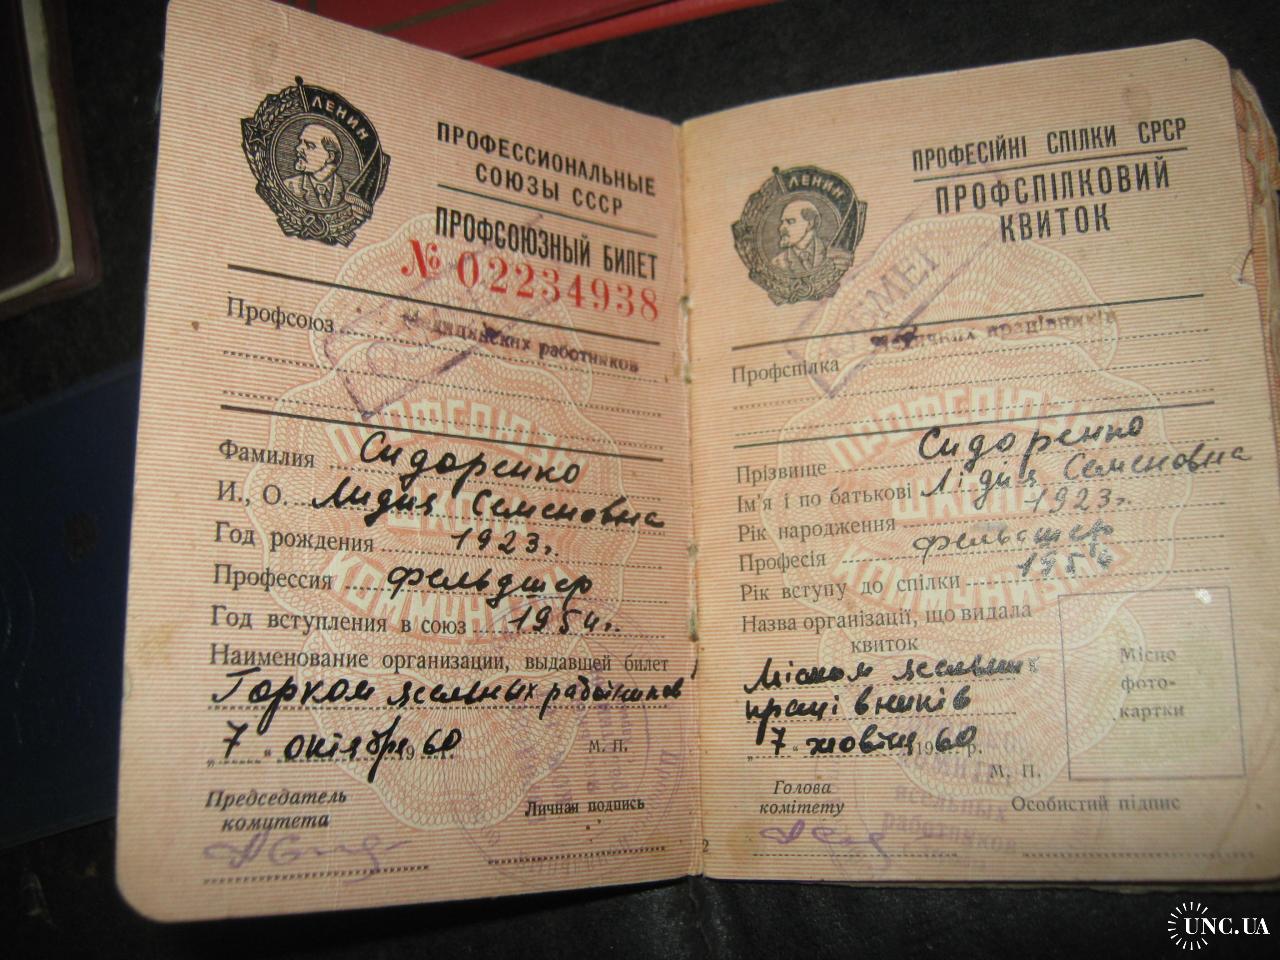 ЛЕНИН
ПРОФЕССИОНАЛЬНЫЕ
СОЮЗЫ СССР
ПРОФСОЮЗНЫЙ БИЛЕТ
№ 02234938
Профсоюз медицинских работников
Фамилия Сидоренко
И., О. Лидия Семеновна
Год рождения 1923г.
Профессия фельдшер
Год вступления в союз 1954г.
Наименование организации, выдавшей билет
Горком работников
„7“ октября 1960 г.
М. П.
Председатель
комитета
Личная подпись
ПРОФСОЮЗЫ
ШКОЛА
КОММУНИЗМА
ЛЕНИН
ПРОФЕСІЙНІ СПІЛКИ СРСР
ПРОФСПІЛКОВИЙ
КВИТОК
Профспілка медичних працівників
Прізвище Сидоренко
Ім'я і по батькові Лідия Семеновна
Рік народження 1923г.
Професія фельдшер
Рік вступу до спілки 1954
Назва організації, що видала
квиток
Міском
працівників
„7“ жовтня 1960 р.
М. П.
Місце
фото-
картки
Голова
комітету
Особистий підпис
ПРОФСОЮЗЫ
ШКОЛА
КОММУНИЗМА
2
UNC.UA